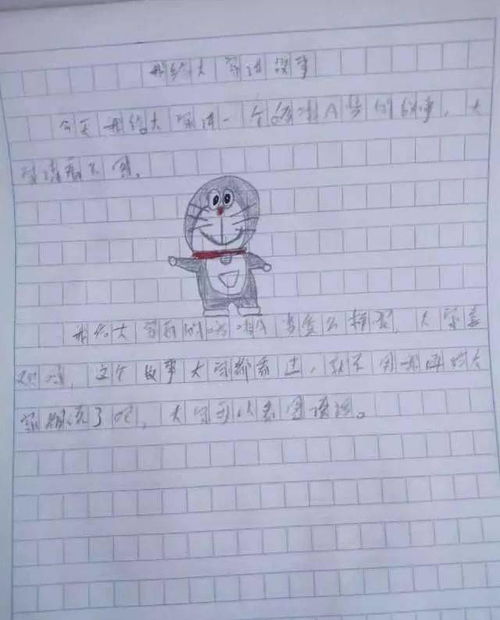 我给大家讲故事
今天我给大家讲一个哆啦A梦的故事，大
家请看下图。
我给大家画的哆啦A梦怎么样啊，大家喜
欢吗，这个故事大家都看过，就不用我再给大
家 了吧，大家可以看图读话。